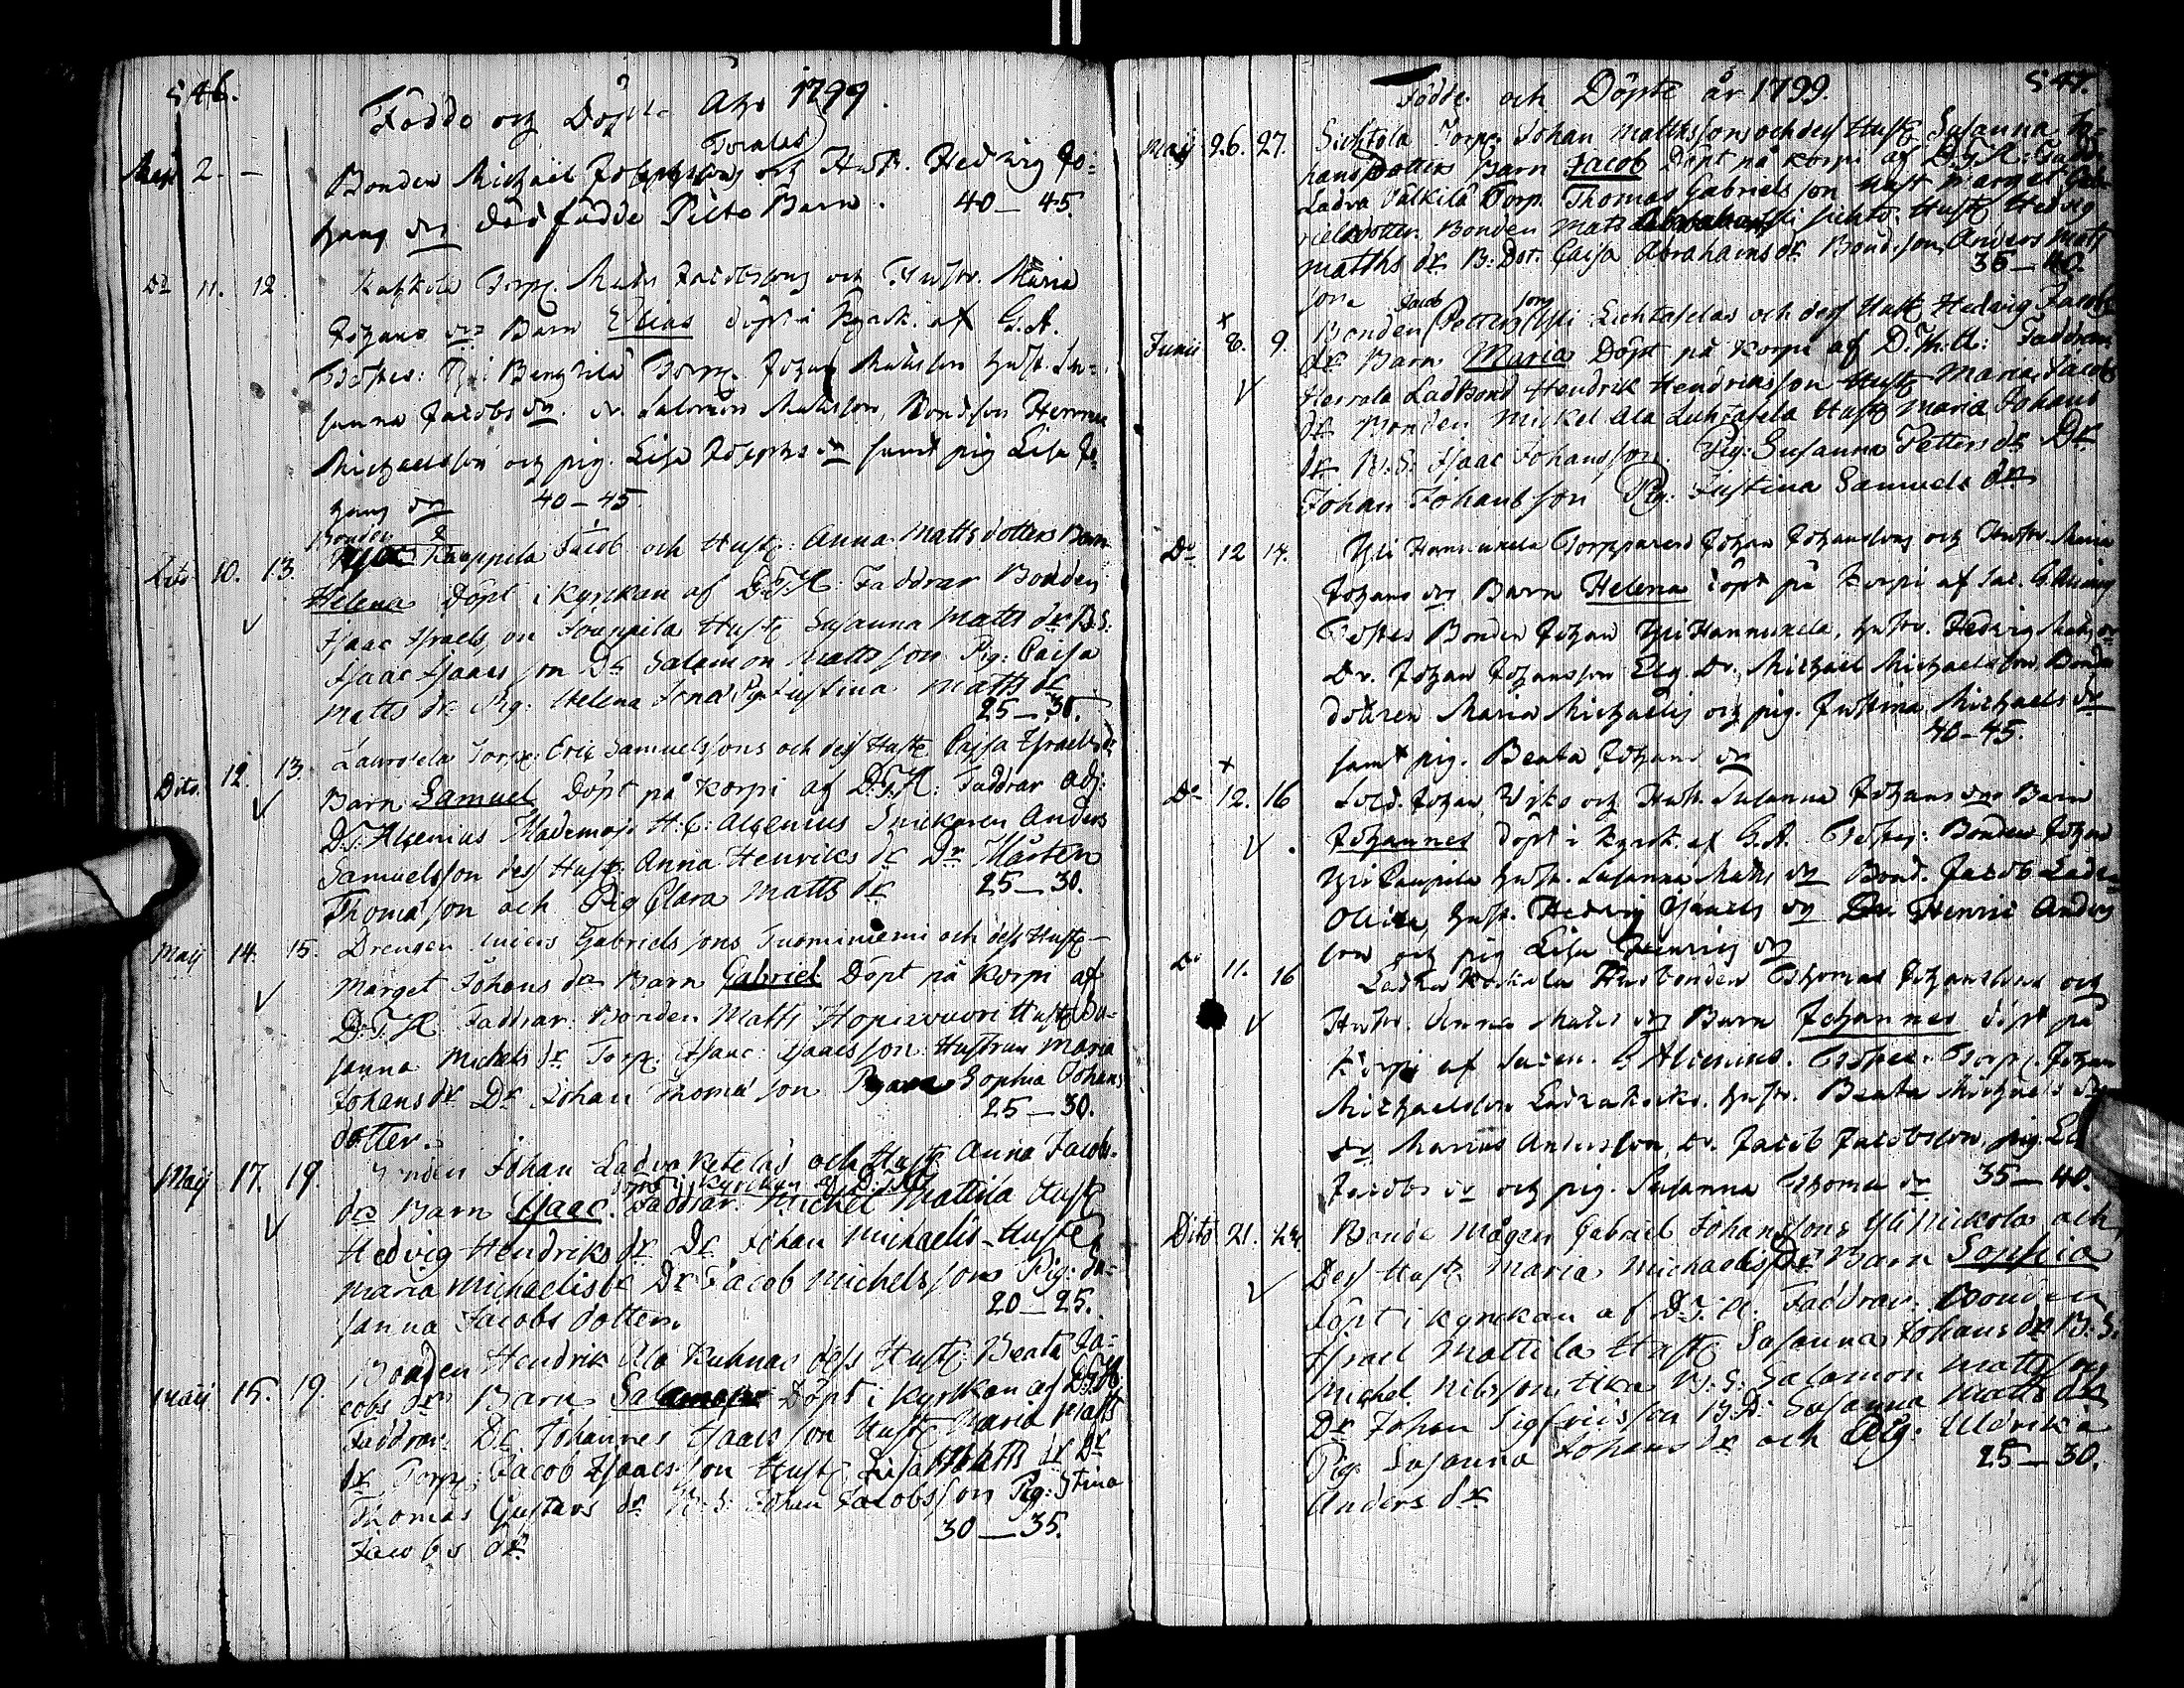 546.
Födde och Döpte Åhr 1799.
Torvelas
Maji 2. — Bonden Michaël Josephsons och Hust. Hedvig Jo-
hans dr. dödfödde Pilto Barn. 40 — 45.
Do 11. 12. Torp. Matts Jacobssons och Hustr. Maria
Johans drs Barn Elias döpt i Kyrck. af G. A.
Testes: Torp. Johan Mattsson hust. Su-
sanna Jacobs dr. dr. Salomon Mattsson, Bondeson Henric
Michaelsson och pig. Lisa Josephs dr samt pig Lisa Jo-
hans dr 40 — 45.
Bonden
Dito 10. 13. Kauppila Jacob och Hustr: Anna Mattsdotters Barn
Helena Döpt i Kyrckan af Faddrar Bonden
Isaac Israels son Jouppila Hustr Susanna Matts dr B. S.
Isaac Isaacs son Dr Salamon Mattsson Pig: Caisa
Matts dr Pig: Helena Pig Justina Matts dr
25 — 30.
Dito. 12. 13. Laurosela Torp: Eric Samuelssons och dess Hustr Caisa Israels dr
Barn Samuel Döpt på Korpi af D. T. H: Faddrar adj:
D. T. Alcenius Mademois. H: C: Alcenius Snickaren Anders
Samuelsson dess Hustr: Anna Henriks dr Dr Mårten
Thomasson och Pig Clara Matts dr 25 — 30.
Maij 14. 15. Drengen Gabriels sons Tuominiemi och dess Hustr
Marget Johans drs Barn Gabriel Döpt på Korpi af
D. T. H Faddrar: Bonden Matts Hopiavuori Hustr Su-
sanna Michels dr Torp: Isaac Isaacsson Hustrun Maria
Johans dr Dr Johan Thomasson Sophia Johans
dotter. 25 — 30.
Maij 17. 19. Bonden Johan Ladvaketelas och Hustr Anna Jacobs-
döpt i kyrckan af D. T. H
drs Barn Isaac. Faddrar. Michel Mattila Hustr
Hedvig Hendriks dr Dr Johan Michaelis Hustr
Maria Michaelis dr Dr Jacob Michelssons Pig: Su-
sanna Jacobs dotter. 20 — 25.
Maij 15. 19. Bonden Hendrik Ala Kuhnas dess Hustr Beata Ja-
cobs drs Barn Salamon Döpt i Kyrckan af D. T. H.
Faddrar: Dr Johannes Isaacsson Hustr Maria Matts
dr Torp: Jacob Isaacsson Hustr Lisa Matts dr Dr
Thomas Gustavs dr B: S: Johan Jacobsson Pig: Stina
Jacobs dr 30 — 35.
547.
Födde och Döpte år 1799.
Maij 26. 27. Torp: Johan Matthssons och dess Hustr Susanna Jo-
hansdotters Barn Jacob Döpt på Korpi af D. T. H: Fadd.
Ladva Välkilä Torp. Thomas Gabrielsson Hust Marget Gab-
rielsdotter. Bonden Mats Hustr Hedvig
Matths dr B: Dot: Caisa Abrahams dr Bondeson Anders Mats
son. 35 — 40.
Jacob son
Junii 8. 9. Bonden Petters Yli Luhtaselas och dess Hustr Hedvig Jacobs
drs Barn Maria Döpt på Korpi af D. Th. A: Faddrar
Herrala Ladbond Hendrik Hendriksson Hustr Maria Jacobs
dr Bonden Mickel Ala Luhtasela Hustr Maria Johans
dr B: S: Isaac Johansson. Pig: Susanna Petters dr Dr
Johan Johansson Pig: Justina Samuels dr
Do 12 14. Yli Hannuxela Torpparen Johan Johanssons och Hustr. Maria
Johans drs Barn Helena döpt på Korpi af
Testes Bonden Johan Yli Hannuxela, hustr. Hedvig Matts dr
Dr. Johan Johansson Elg Dr. Michaël Michaelsson, Bonde
dottren Maria Michaelis och pig. Justina Michaels dr
samt pig. Beata Johans dr 40 — 45.
Do 12. 16 Sold. Johan och Hust. Susanna Johans drs Barn
Johannes döpt i Kyrck. af G. A. Testes: Bonden Johan
Yli Kaupila hustr. Susanna Matts dr Bond. Jacob Ladva
Ollila, hust. Hedvig dr Dr Henric Anders
son och pig Lisa Henrics dr
Do 11. 16 Ladva Koskela Husbonden Thomas Johanssons och
Hustr. Anna Matts drs Barn Johannes döpt på
Korpi af G Alcenius. Testes: Torp. Johan
Michaelsson hustr. Beata Michaels dr
dr Marcus Andersson, dr. Jacob Jacobsson, pig.
Jacobs dr och pig. Susanna Thomæ dr 35 — 40.
Dito 21. 24. Bonde Mågen Gabriel Johanssons Yli Nickola och
Dess Hustr Maria Michaelis Drs Barn Sophia
Döpt i kyrckan af D. T. A: Faddrar. Bonden
Israel Mattila Hustr Susanna Johans dr B: S.
Michel Nilsson B: S: Salamon Mattsson
Dr Johan Sigfridsson B. D: Susanna Matts dr
Pig. Susanna Johans dr och Pig. Uldrika
Anders dr 25 — 30.